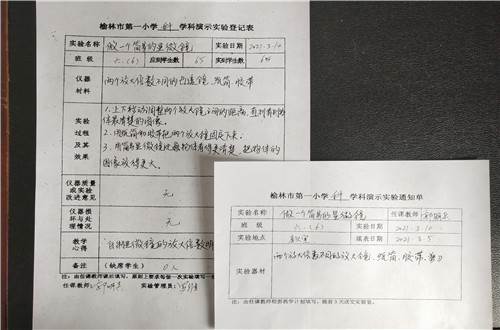 榆林市第一小学 科 学科演示实验登记表
实验名称 做一个简易的显微镜 实验日期 2021.3.10
班级 六.(6) 应到学生数 65 实到学生数
仪器材料 两个放大倍数不同的凸透镜、纸筒、胶带
实验过程及其效果
1.上下移动调整两个放大镜之间的距离,直到看到物体最清楚的图像。
2.用纸筒和胶带把两个放大镜固定下来。
3.用简易显微镜
图像放得更大。
仪器质量或实验改进意见 无
仪器损坏与处理情况 无
教学心得 自制显微镜的放大倍数
备注 (缺席学生) 0人
注:由任课教师课前填写,
任课教师:
实验管理员:
榆林市第一小学 科 学科演示实验通知单
实验名称 做一个简易的显微镜 任课教师
班级 六.(6) 实验日期 2021.3.10
实验地点 教室 填表日期 2021.3.5
实验器材 两个放大倍数不同的放大镜、纸筒、胶带、剪刀
注:由任课教师根据教学计划填写,提前3天送交实验室。